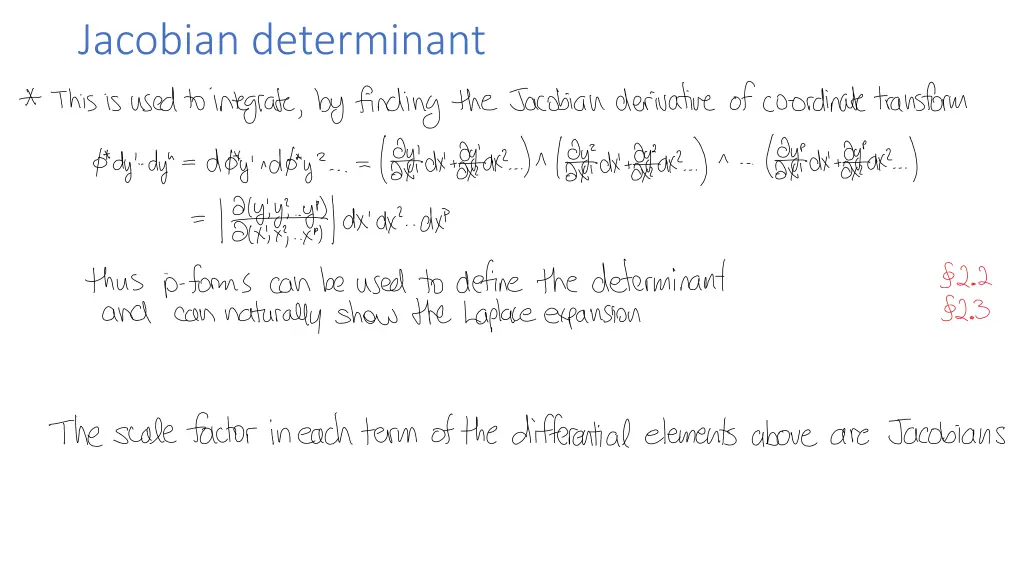 Jacobian determinant
* This is used to integrate, by finding the Jacobian derivative of coordinate transform
ϕ*dy¹··dyⁿ = dϕ*y¹ ∧ dϕ*y² ... = (∂y¹/∂x¹ dx¹ + ∂y¹/∂x² dx² ...) ∧ (∂y²/∂x¹ dx¹ + ∂y²/∂x² dx² ...) ∧ ... (∂yᵖ/∂x¹ dx¹ + ∂yᵖ/∂x² dx² ...)
= |∂(y¹, y², ..yᵖ)/∂(x¹, x², ..xᵖ)| dx¹ dx² ·· dxᵖ
thus p-forms can be used to define the determinant §2.2
and can naturally show the Laplace expansion §2.3
The scale factor in each term of the differential elements above are Jacobians